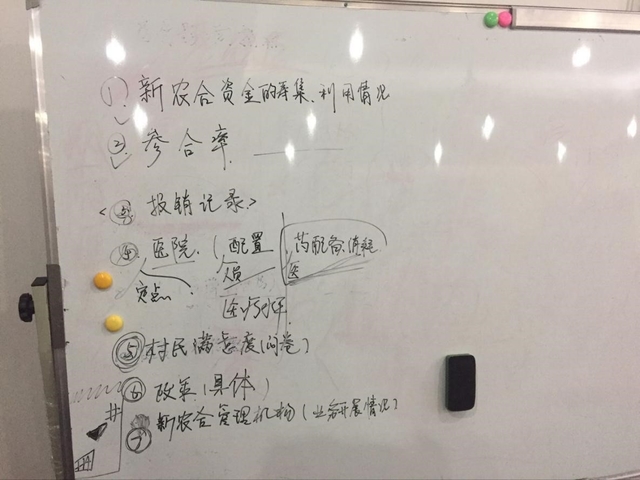 ① 新农合资金的筹集、利用情况
② 参合率.
③ 报销记录
④ 医院.(配置 药配备.消耗
定点 人员 医
医疗水平
⑤ 村民满意度(问卷)
⑥ 政策(具体)
⑦ 新农合管理机构(业务开展情况)